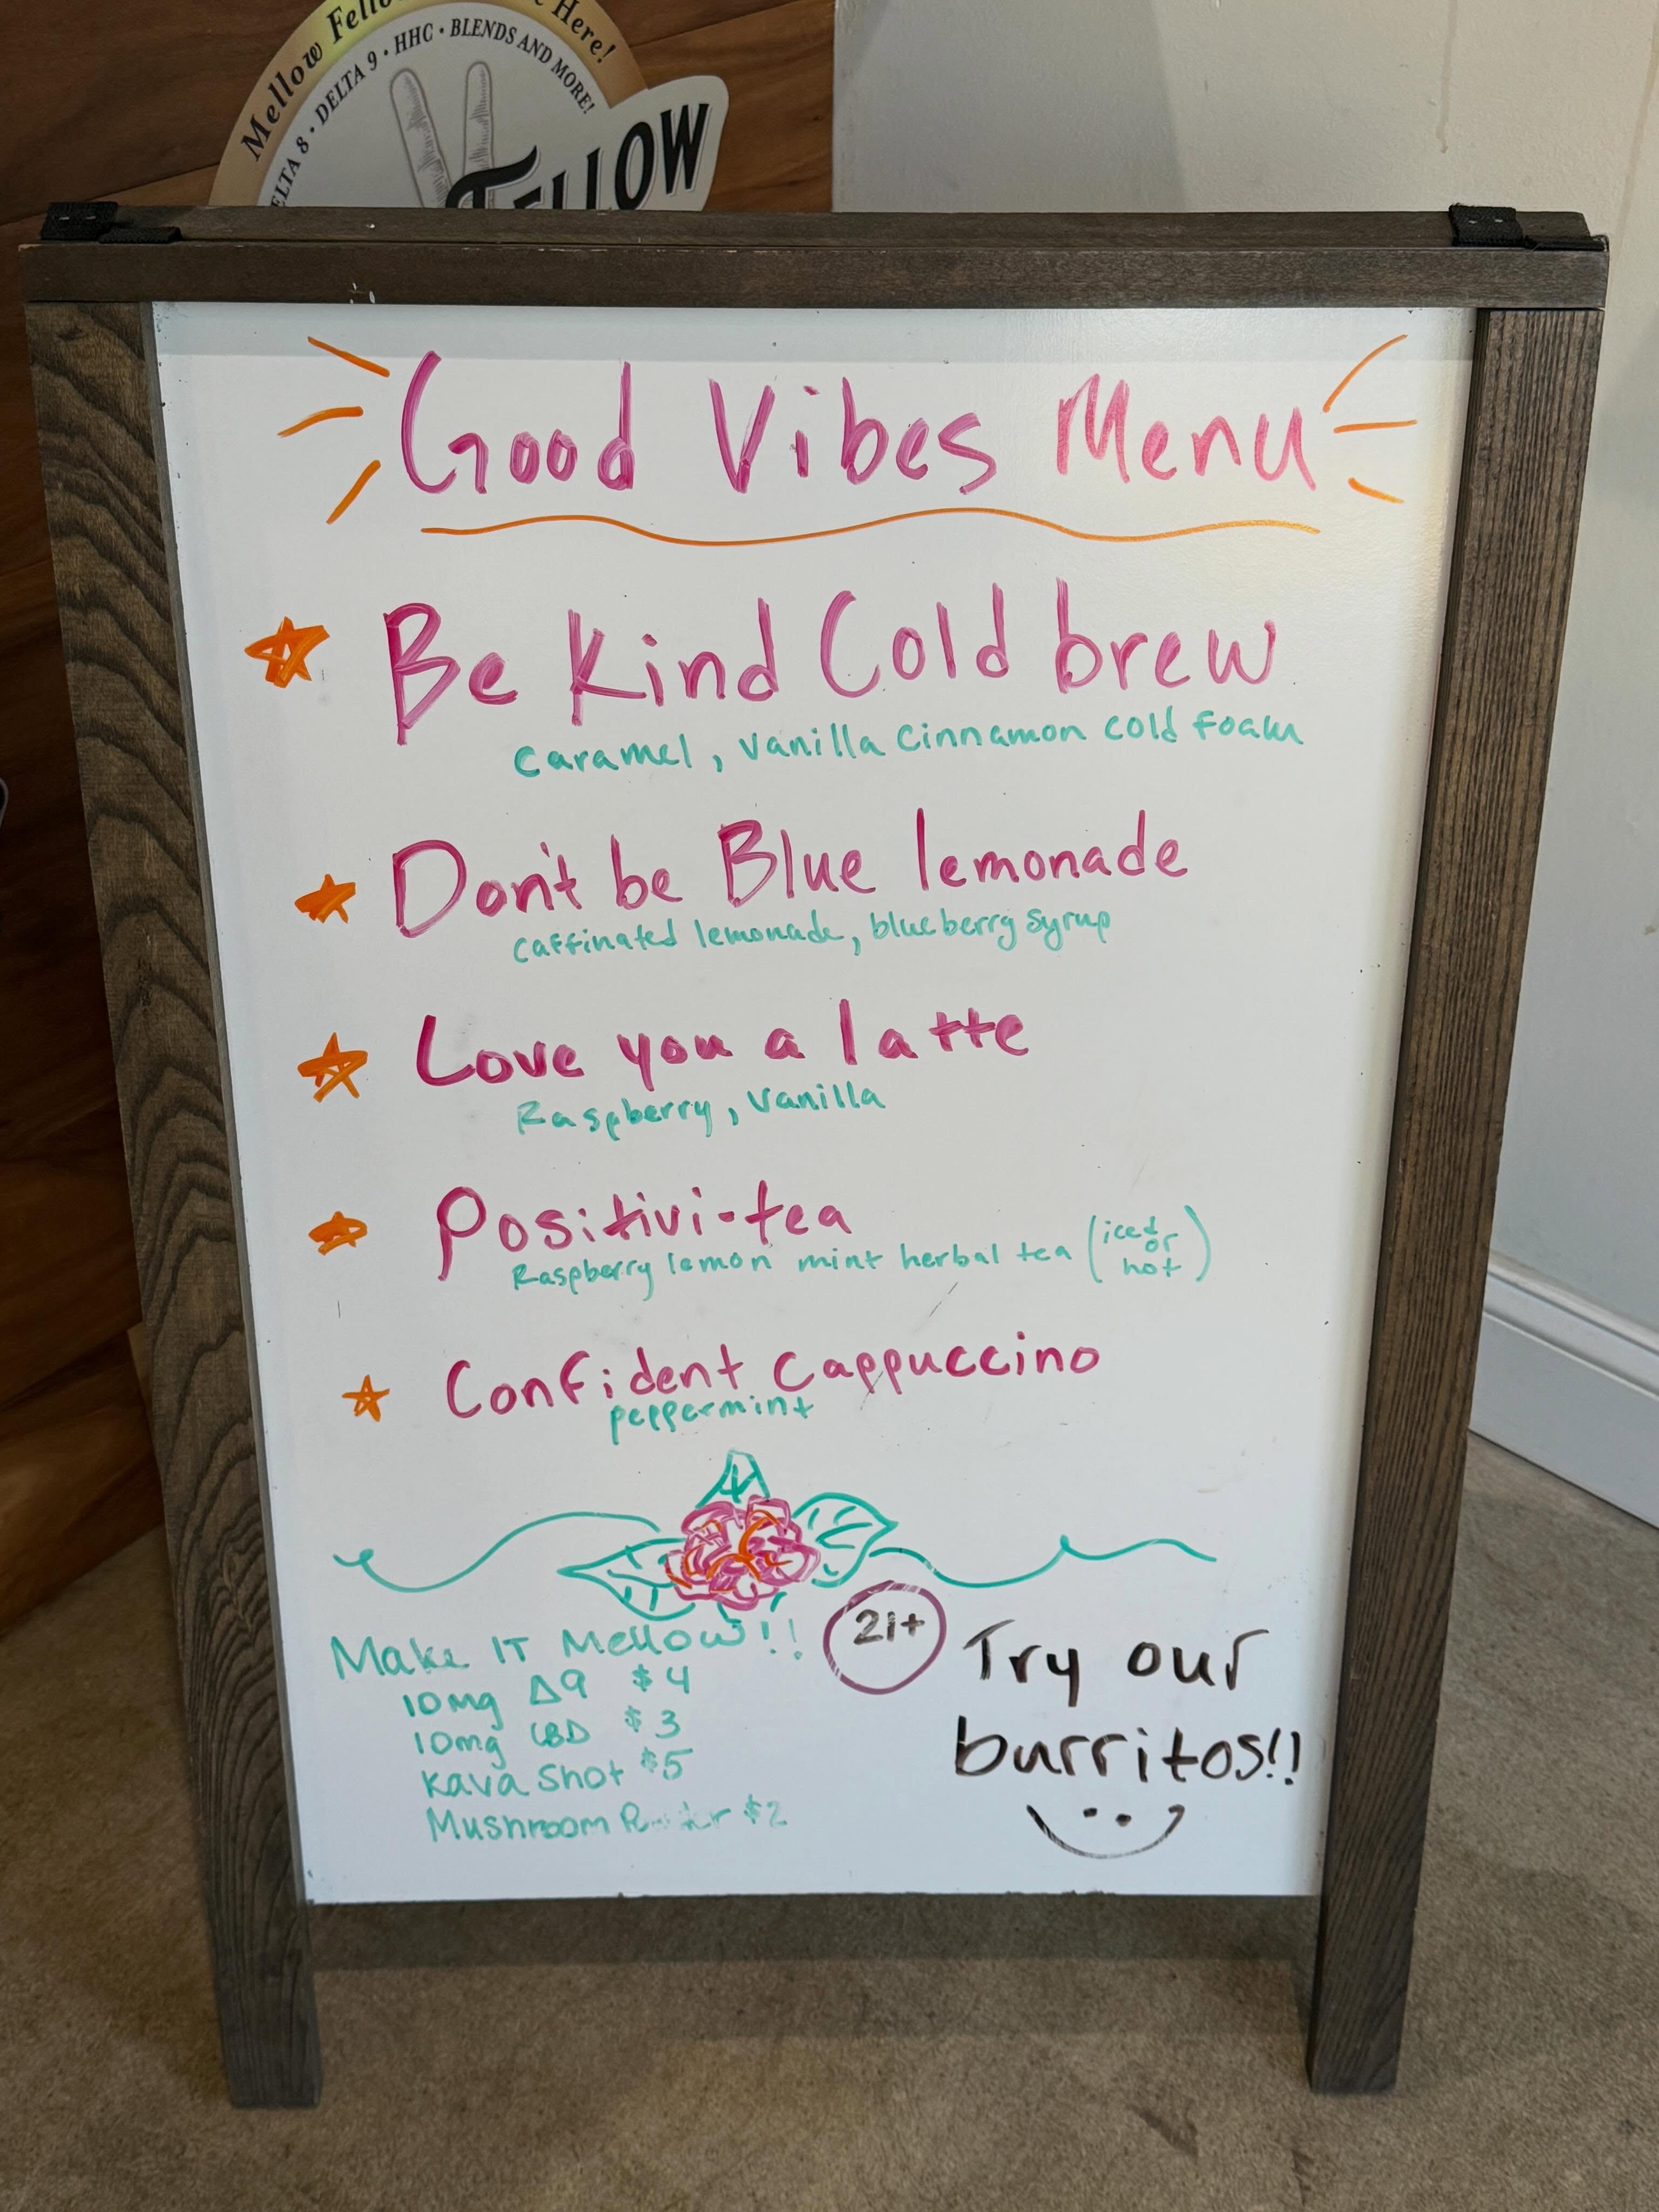 Mellow Fello Here!
ELTA 8 • DELTA 9 • HHC • BLENDS AND MORE!
FELLOW
Good Vibes Menu
Be Kind Cold brew
Caramel, Vanilla Cinnamon cold foam
Don't be Blue lemonade
Caffinated lemonade, blueberry syrup
Love you a latte
Raspberry, Vanilla
Positivi-tea
Raspberry lemon mint herbal tea (iced or hot)
Confident Cappuccino
peppermint
Make IT Mellow!!
21+
10mg Δ9 $4
10mg CBD $3
Kava Shot $5
Mushroom $2
Try our
burritos!!